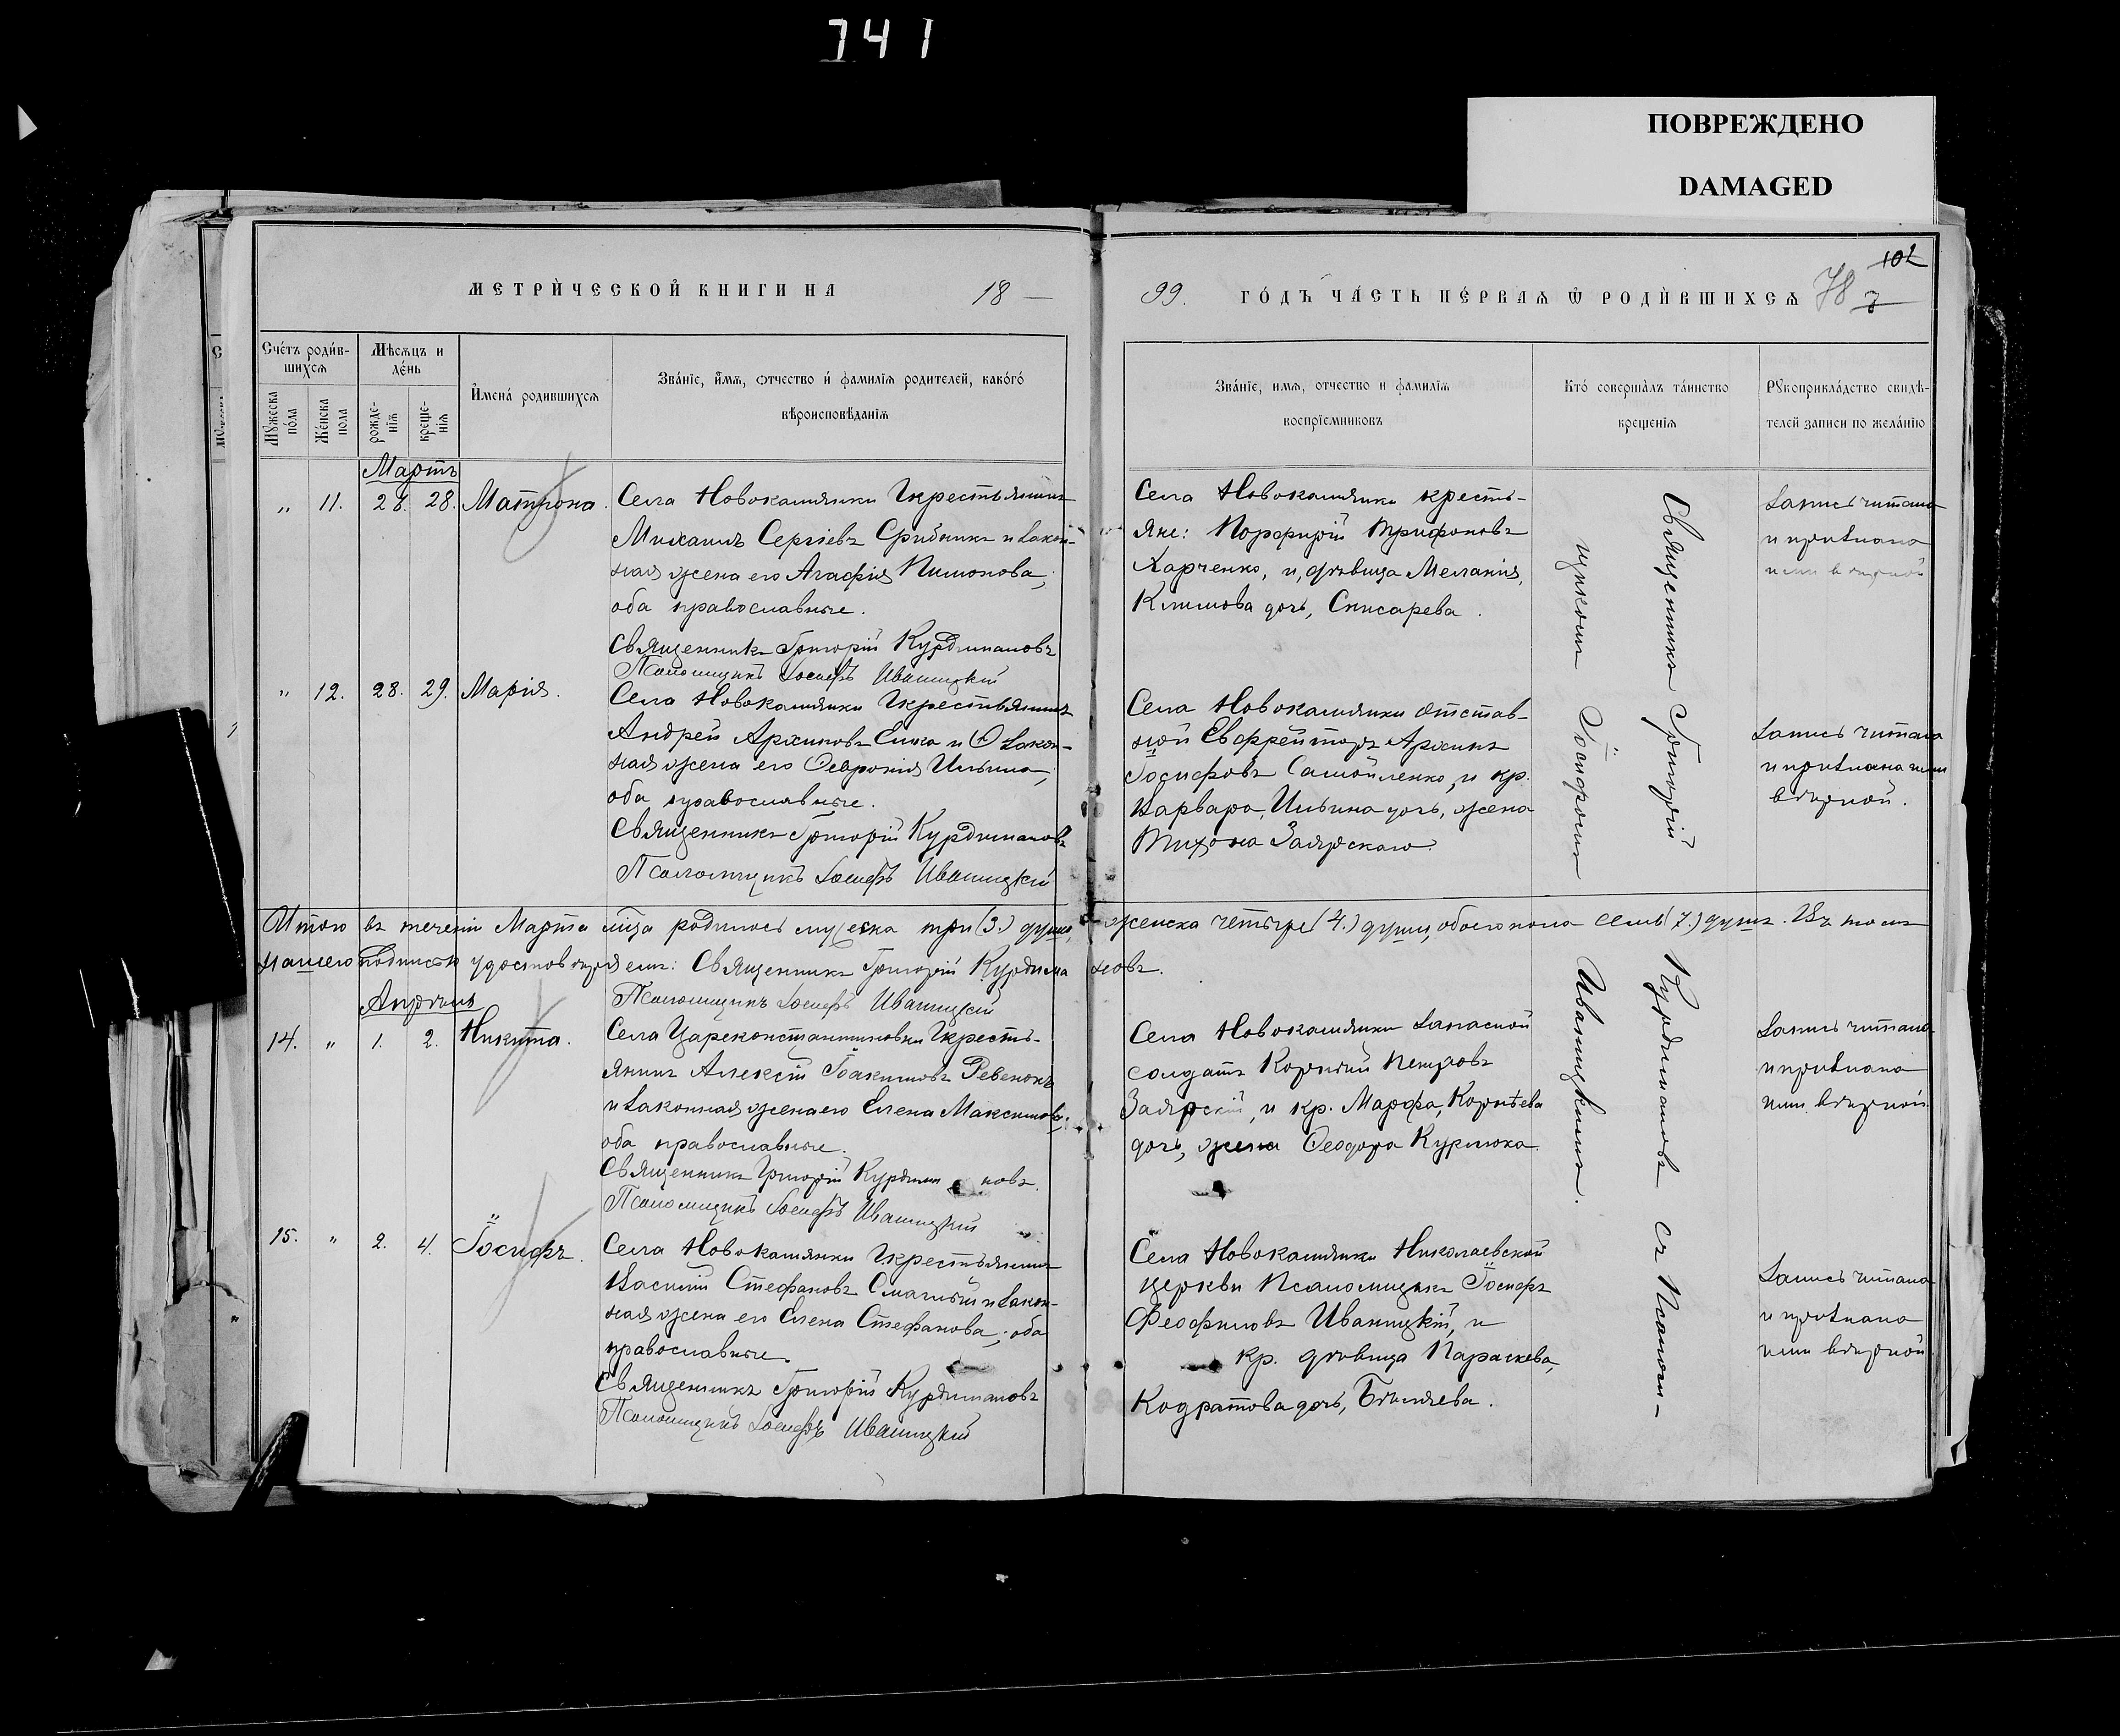 741
ПОВРЕЖДЕНО
DAMAGED
МЕТРИ́ЧЕСКОЙ КНИГИ НА 18 —
99. ГО́ДЪ ЧА́СТЬ ПЕ́РВАѦ Ѿ РОДИ́ВШИХСѦ 78
102
Сче́тъ роди́в-
шихсѧ
Мѣсѧцъ и
де́нь
Мꙋжеска
по́ла
Же́нска
пола
рожде-
нїѧ
креще-
нїѧ
И҆мена́ родившихсѧ
Зва́нїе, и҆́мѧ, ѻтчество и҆ фамилїѧ родителей, како́гѡ
вѣроисповѣданїѧ
Зва́нїе, имѧ, отчество и фамилїѧ
воспрїемниковъ
Кто́ соверша́лъ та́инство
крещенїѧ
Рꙋкоприкла́дство свидѣ́-
телей записи по жела́нїю
Мартъ
„ 11. 28. 28. Матрона.
Села Новокаменки крестьянинъ
Михаилъ Сергіевъ Срибникъ и закон-
ная жена его Агафія Пимонова,
оба православные.
Священникъ Григорій Курдимановъ
Псаломщикъ Іосифъ Иваницкій
Села Новокаменки кресть-
яне: Порфирій Трифоновъ
Харченко, и, дѣвица Меланія,
Климова дочь, Снисарева.
Запись читана
и признана
ими вѣрной
„ 12. 28. 29. Марія.
Села Новокаменки крестьянинъ
Андрей Архиповъ и закон-
ная жена его Февронія Ильина,
оба православные.
Священникъ Григорій Курдимановъ
Псаломщикъ Іосифъ Иваницкій
Села Новокаменки отстав-
ной Ефрейторъ Архипъ
Іосифовъ Самойленко, и кр.
Варвара, Ильина дочь, жена
Тихона Заярскаго.
Запись читана
и признана ими
вѣрной.
Итого въ теченіи Марта мѣца родилось мужеска три (3.) души, женска четыре (4.) души, обоего пола семь (7.) душъ. Въ томъ
нашею подписью удостовѣряемъ: Священникъ Григорій Курдимановъ.
Псаломщикъ Іосифъ Иваницкій
Апрѣль
14. „ 1. 2. Никита.
Села Цареконстантиновки кресть-
янинъ Алексій Іоакимовъ Ревенокъ
и законная жена его Елена Максимова;
оба православные.
Священникъ Григорій Курдимановъ.
Псаломщикъ Іосифъ Иваницкій
Села Новокаменки запасной
солдатъ Корнилій Петровъ
Заярскій, и кр. Марфа, Корнѣева
дочь, жена Ѳеодора Курпюка.
Запись читана
и признана
ими вѣрной
15. „ 2. 4. Іосифъ.
Села Новокаменки крестьянинъ
Василій Стефановъ Смаглый и закон-
ная жена его Елена Стефанова; оба
православные.
Священникъ Григорій Курдимановъ
Псаломщикъ Іосифъ Иваницкій
Села Новокаменки Николаевской
церкви Псаломщикъ Іосифъ
Феофиловъ Иваницкій, и
кр. дѣвица Параскева,
Кодратова дочь, Бѣляева.
Запись читана
и признана
ими вѣрной
Священникъ Григорій Курдимановъ съ Псалом-
щикомъ Іосифомъ Иваницкимъ.